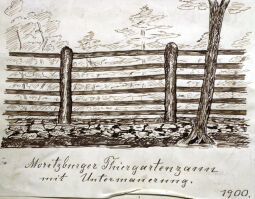 Moritzburger Thiergartenzaun
mit Untermauerung.
1900.